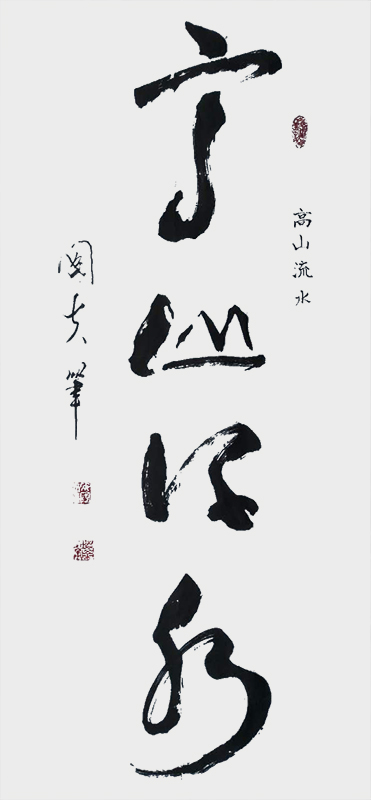 高山流水
高山流水
筆